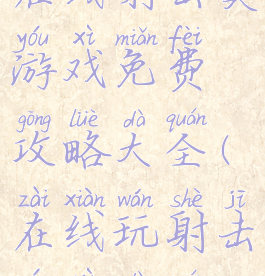 yóu xì miǎn fèi
游戏免费
gōng lüè dà quán
攻略大全(
zài xiàn wán shè jī
在线玩射击